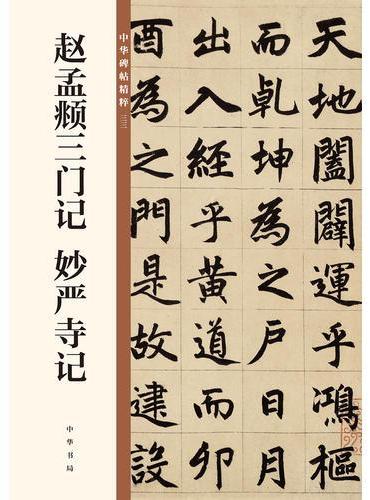 赵孟𫖯三门记 妙严寺记
中华书局
中华碑帖精粹 三三
天地闔闢運乎鴻樞
而乾坤為之戶日月
出入經乎黃道而卯
酉為之門是故建設